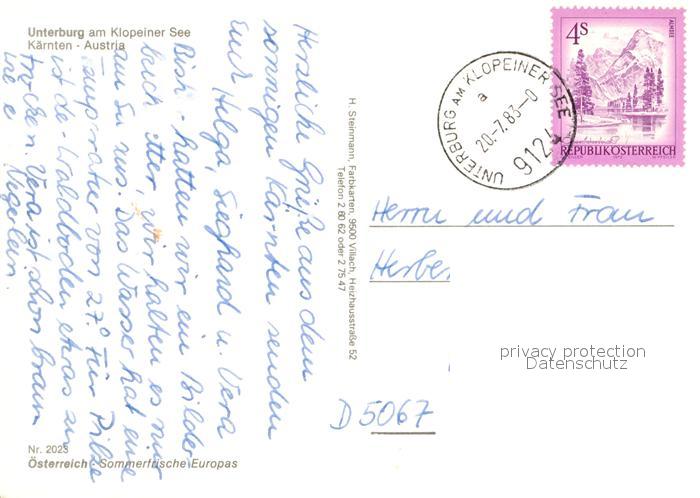 Unterburg am Klopeiner See
Kärnten - Austria
Herzliche Grüße aus dem
sonnigen Kärnten senden
Euch Helga Sieghard u. Vera
Bish. hatten wir ein Bilder
buch etter, wir halten es nur
am See aus. Das Wasser hat eine
Temperatur von 27°. Für Pilze
ist de Waldboden etwas zu
trocken. Vera ist schon braun
wie e Negerlein.
Nr. 2023
Österreich - Sommerfrische Europas
H. Steinmann, Farbkarten, 9500 Villach, Heizhausstraße 52
Telefon 2 80 62 oder 2 75 47
UNTERBURG AM KLOPEINER SEE
a
20.-7.83-0
912
4S
ALMSEE
REPUBLIK ÖSTERREICH
Herrn und Frau
Herbe
D 5067
privacy protection
Datenschutz